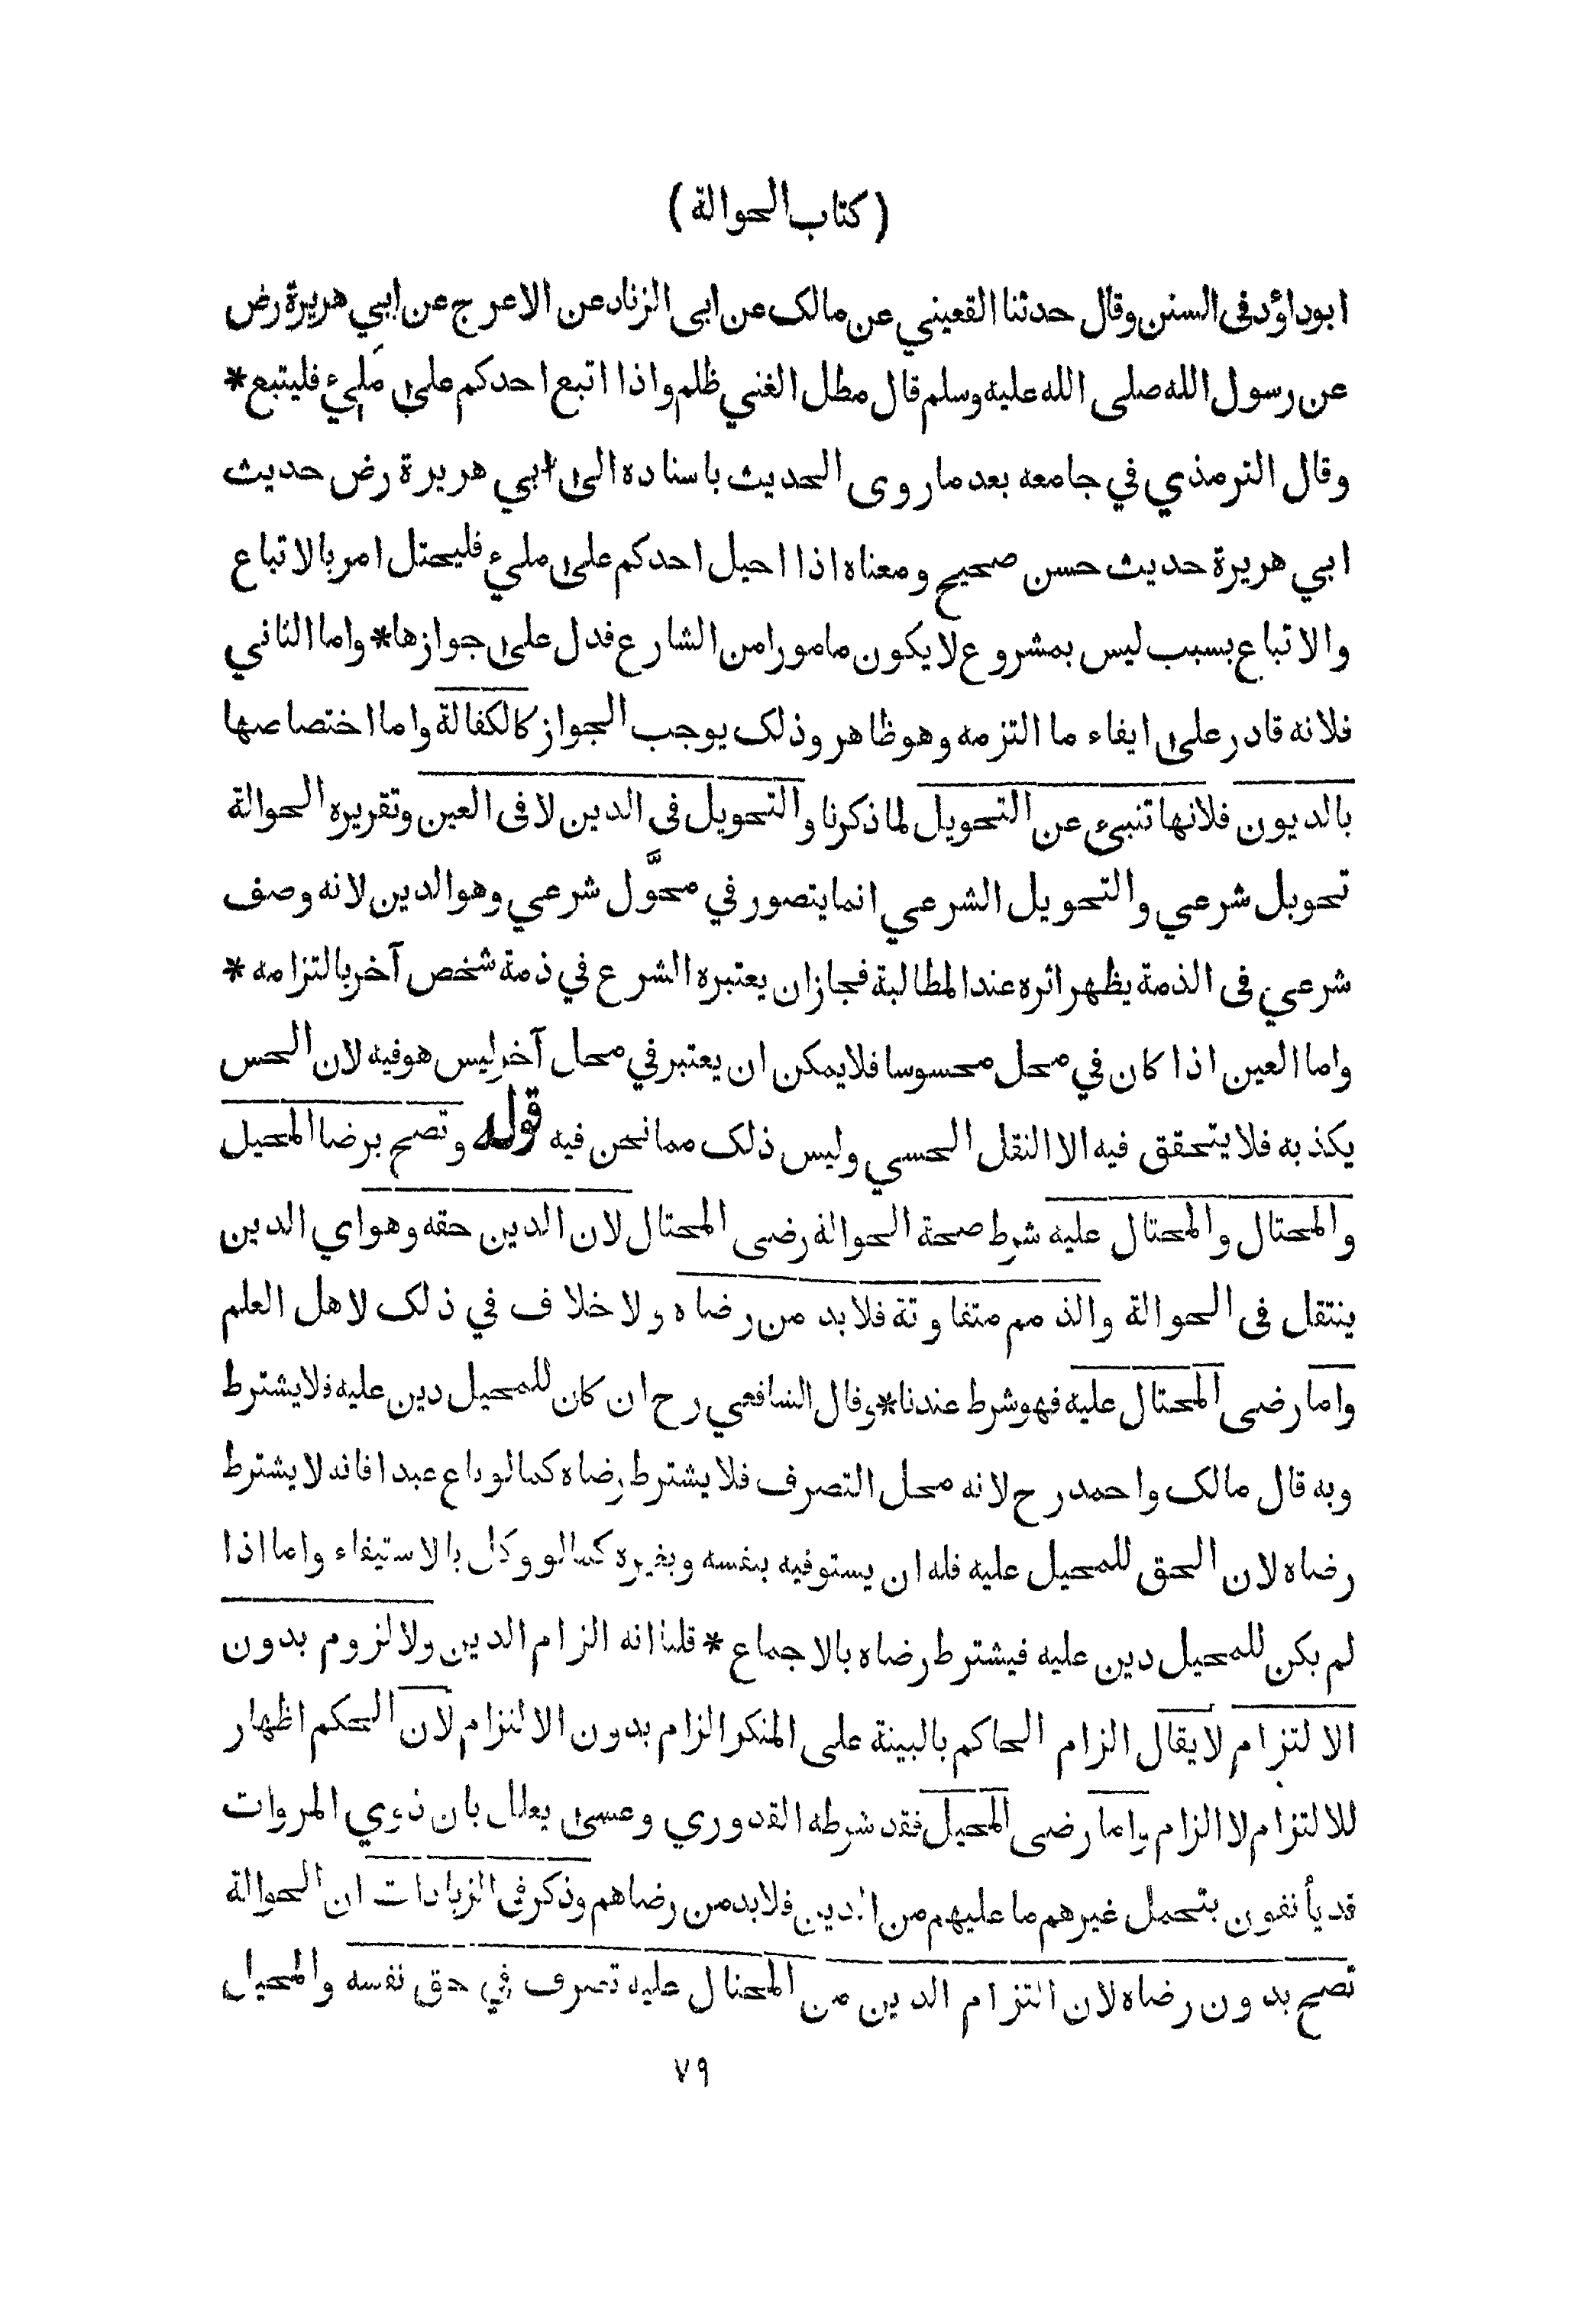 (كتاب الحوالة)
ابوداؤد فى السنن وقال حدثنا القعيني عن مالك عن ابى الزناد عن الاعرج عن ابي هريرة رض
عن رسول الله صلى الله عليه وسلم قال مطل الغني ظلم واذا اتبع احدكم على مليء فليتبع *
وقال الترمذي في جامعه بعد ما روى الحديث باسناده الى ابي هريرة رض حديث
ابي هريرة حديث حسن صحيح ومعناه اذا احيل احدكم على مليء فليحتل امر بالاتباع
والاتباع بسبب ليس بمشروع لا يكون مامورا من الشارع فدل على جوازها * واما الثاني
فلانه قادر على ايفاء ما التزمه وهو ظاهر وذلك يوجب الجواز كالكفالة واما اختصاصها
بالديون فلانها تنبىء عن التحويل لما ذكرنا والتحويل فى الدين لا فى العين وتقريره الحوالة
تحويل شرعي والتحويل الشرعي انما يتصور في محوَّل شرعي وهو الدين لانه وصف
شرعي فى الذمة يظهر اثره عند المطالبة فجاز ان يعتبره الشرع في ذمة شخص آخر بالتزامه *
واما العين اذا كان في محل محسوسا فلا يمكن ان يعتبر في محل آخر ليس هو فيه لان الحس
يكذبه فلا يتحقق فيه الا النقل الحسي وليس ذلك مما نحن فيه قوله وتصح برضا المحيل
والمحتال والمحتال عليه شرط صحة الحوالة رضى المحتال لان الدين حقه وهو اي الدين
ينتقل فى الحوالة والذمم متفاوتة فلا بد من رضاه ولا خلاف في ذلك لاهل العلم
واما رضى المحتال عليه فهو شرط عندنا * وقال الشافعي رح ان كان للمحيل دين عليه فلا يشترط
وبه قال مالك واحمد رح لانه محل التصرف فلا يشترط رضاه كما لو باع عبدا فانه لا يشترط
رضاه لان الحق للمحيل عليه فله ان يستوفيه بنفسه وبغيره كما لو وكل بالاستيفاء واما اذا
لم يكن للمحيل دين عليه فيشترط رضاه بالاجماع * قلنا انه الزام الدين ولا لزوم بدون
الالتزام لا يقال الزام الحاكم بالبينة على المنكر الزام بدون الالتزام لان الحكم اظهار
للالتزام لا الزام واما رضى المحيل فقد شرطه القدوري وعسى يعلل بان ذوي المروات
قد يأنفون بتحمل غيرهم ما عليهم من الدين فلا بد من رضاهم وذكر فى الزيادات ان الحوالة
تصح بدون رضاه لان التزام الدين من المحتال عليه تصرف في حق نفسه والمحيل
٧٩